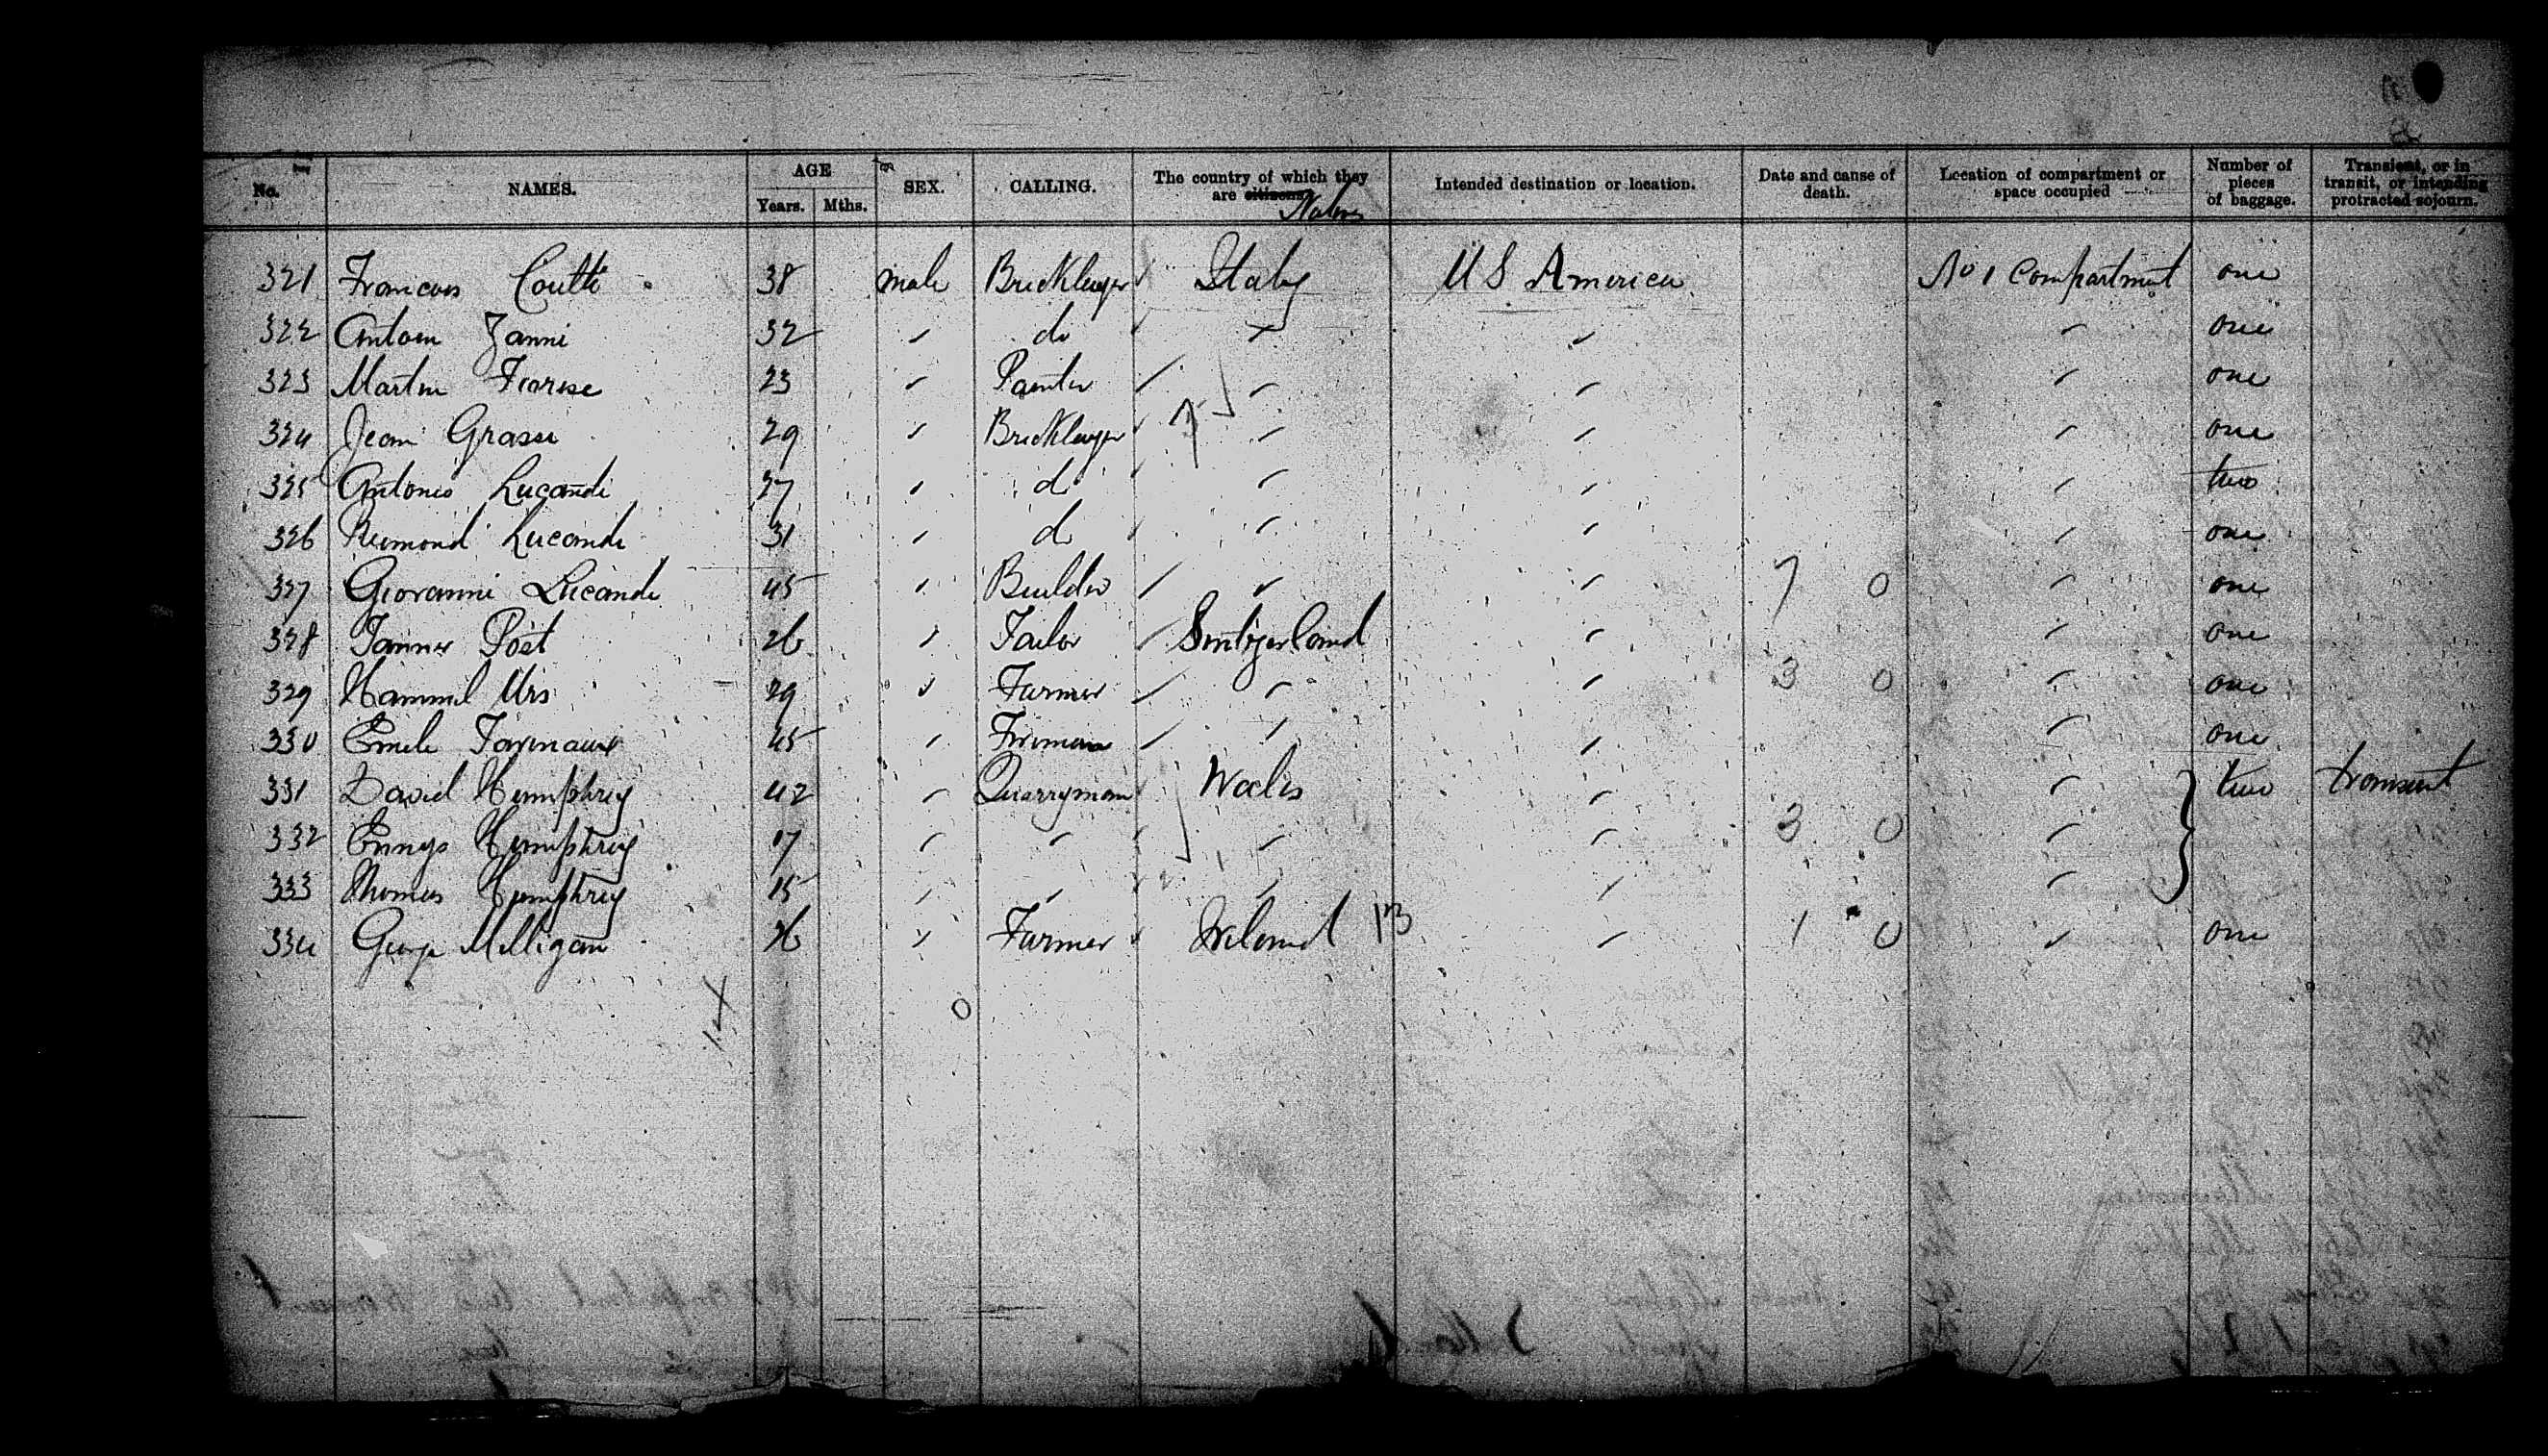 No. NAMES. AGE Years. Mths. SEX. CALLING. The country of which they are citizens Natives Intended destination or location. Date and cause of death. Location of compartment or space occupied Number of pieces of baggage. Transient, or in transit, or intending protracted sojourn.
321 Francois Coutti 38 male Bricklayer Italy U S America No 1 Compartment one
322 Antoin Zanni 32 ✓ do ✓ ✓ ✓ one
323 Martin Fiorese 23 ✓ Painter ✓ ✓ ✓ one
324 Jean Grassi 29 ✓ Bricklayer ✓ ✓ ✓ one
325 Antonio Lucandi 27 ✓ do ✓ ✓ ✓ two
326 Remond Lucandi 31 ✓ do ✓ ✓ ✓ one
327 Giovanni Lucandi 45 ✓ Builder ✓ ✓ 7 0 ✓ one
328 Tanner Post 26 ✓ Tailor Switzerland ✓ ✓ one
329 Hammel Urs 29 ✓ Farmer ✓ ✓ 3 0 ✓ one
330 Emile 45 ✓ Fireman ✓ ✓ ✓ one
331 David Humphrey 42 ✓ Quarryman Wales ✓ ✓ two transient
332 Humphrey 17 ✓ ✓ ✓ ✓ 3 0 ✓
333 Thomas Humphrey 15 ✓ ✓ ✓ ✓ ✓
334 George Milligan 26 ✓ Farmer Ireland ✓ 1 0 ✓ one
14 0